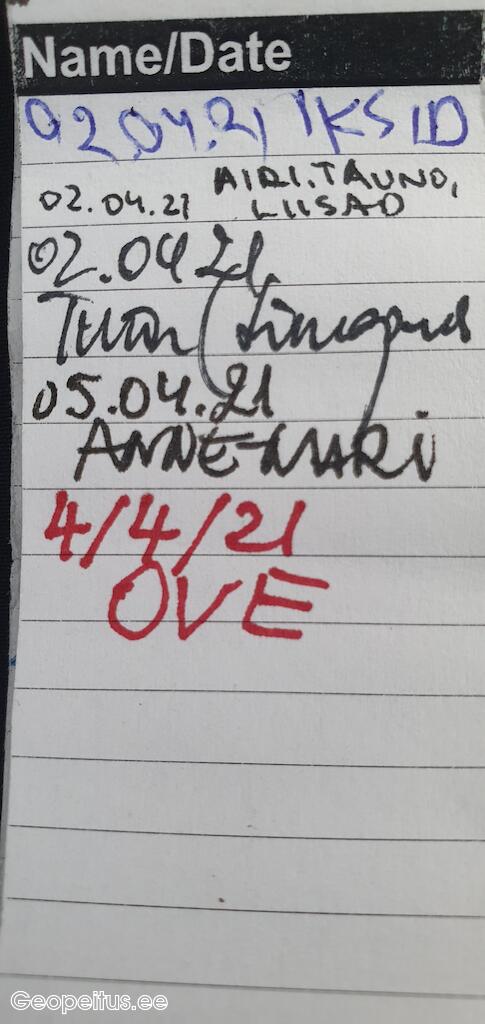 Name/Date
02.04.21 IKSID
02.04.21 AIRI, TAUNO,
LIISAD
02.04 21.
05.04.21
ANNE-MARI
4/4/21
OVE
Geopeitus.ee